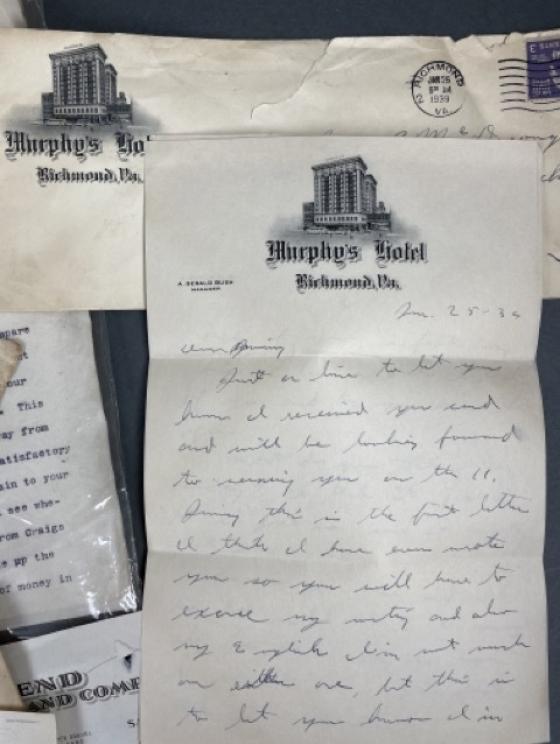 Murphy's Ho
Richmond, Va.
RICHMOND
JAN 26
1939
VA.
Murphy's Hotel
Richmond, Va.
A. GERALD BUSH
MANAGER
Jan. 25-39
Just a line to let you
know I received you card
and will be looking forward
to seeing you on the 11.
this is the first letter
I think I have ever wrote
you so you will have to
excuse my writing and also
my English I'm not much
on either one, but this is
to let you know I'm
mpare
our
. This
ay from
atisfactory
ain to your
see whe-
rom Craige
e up the
of money in
END
AND COMP